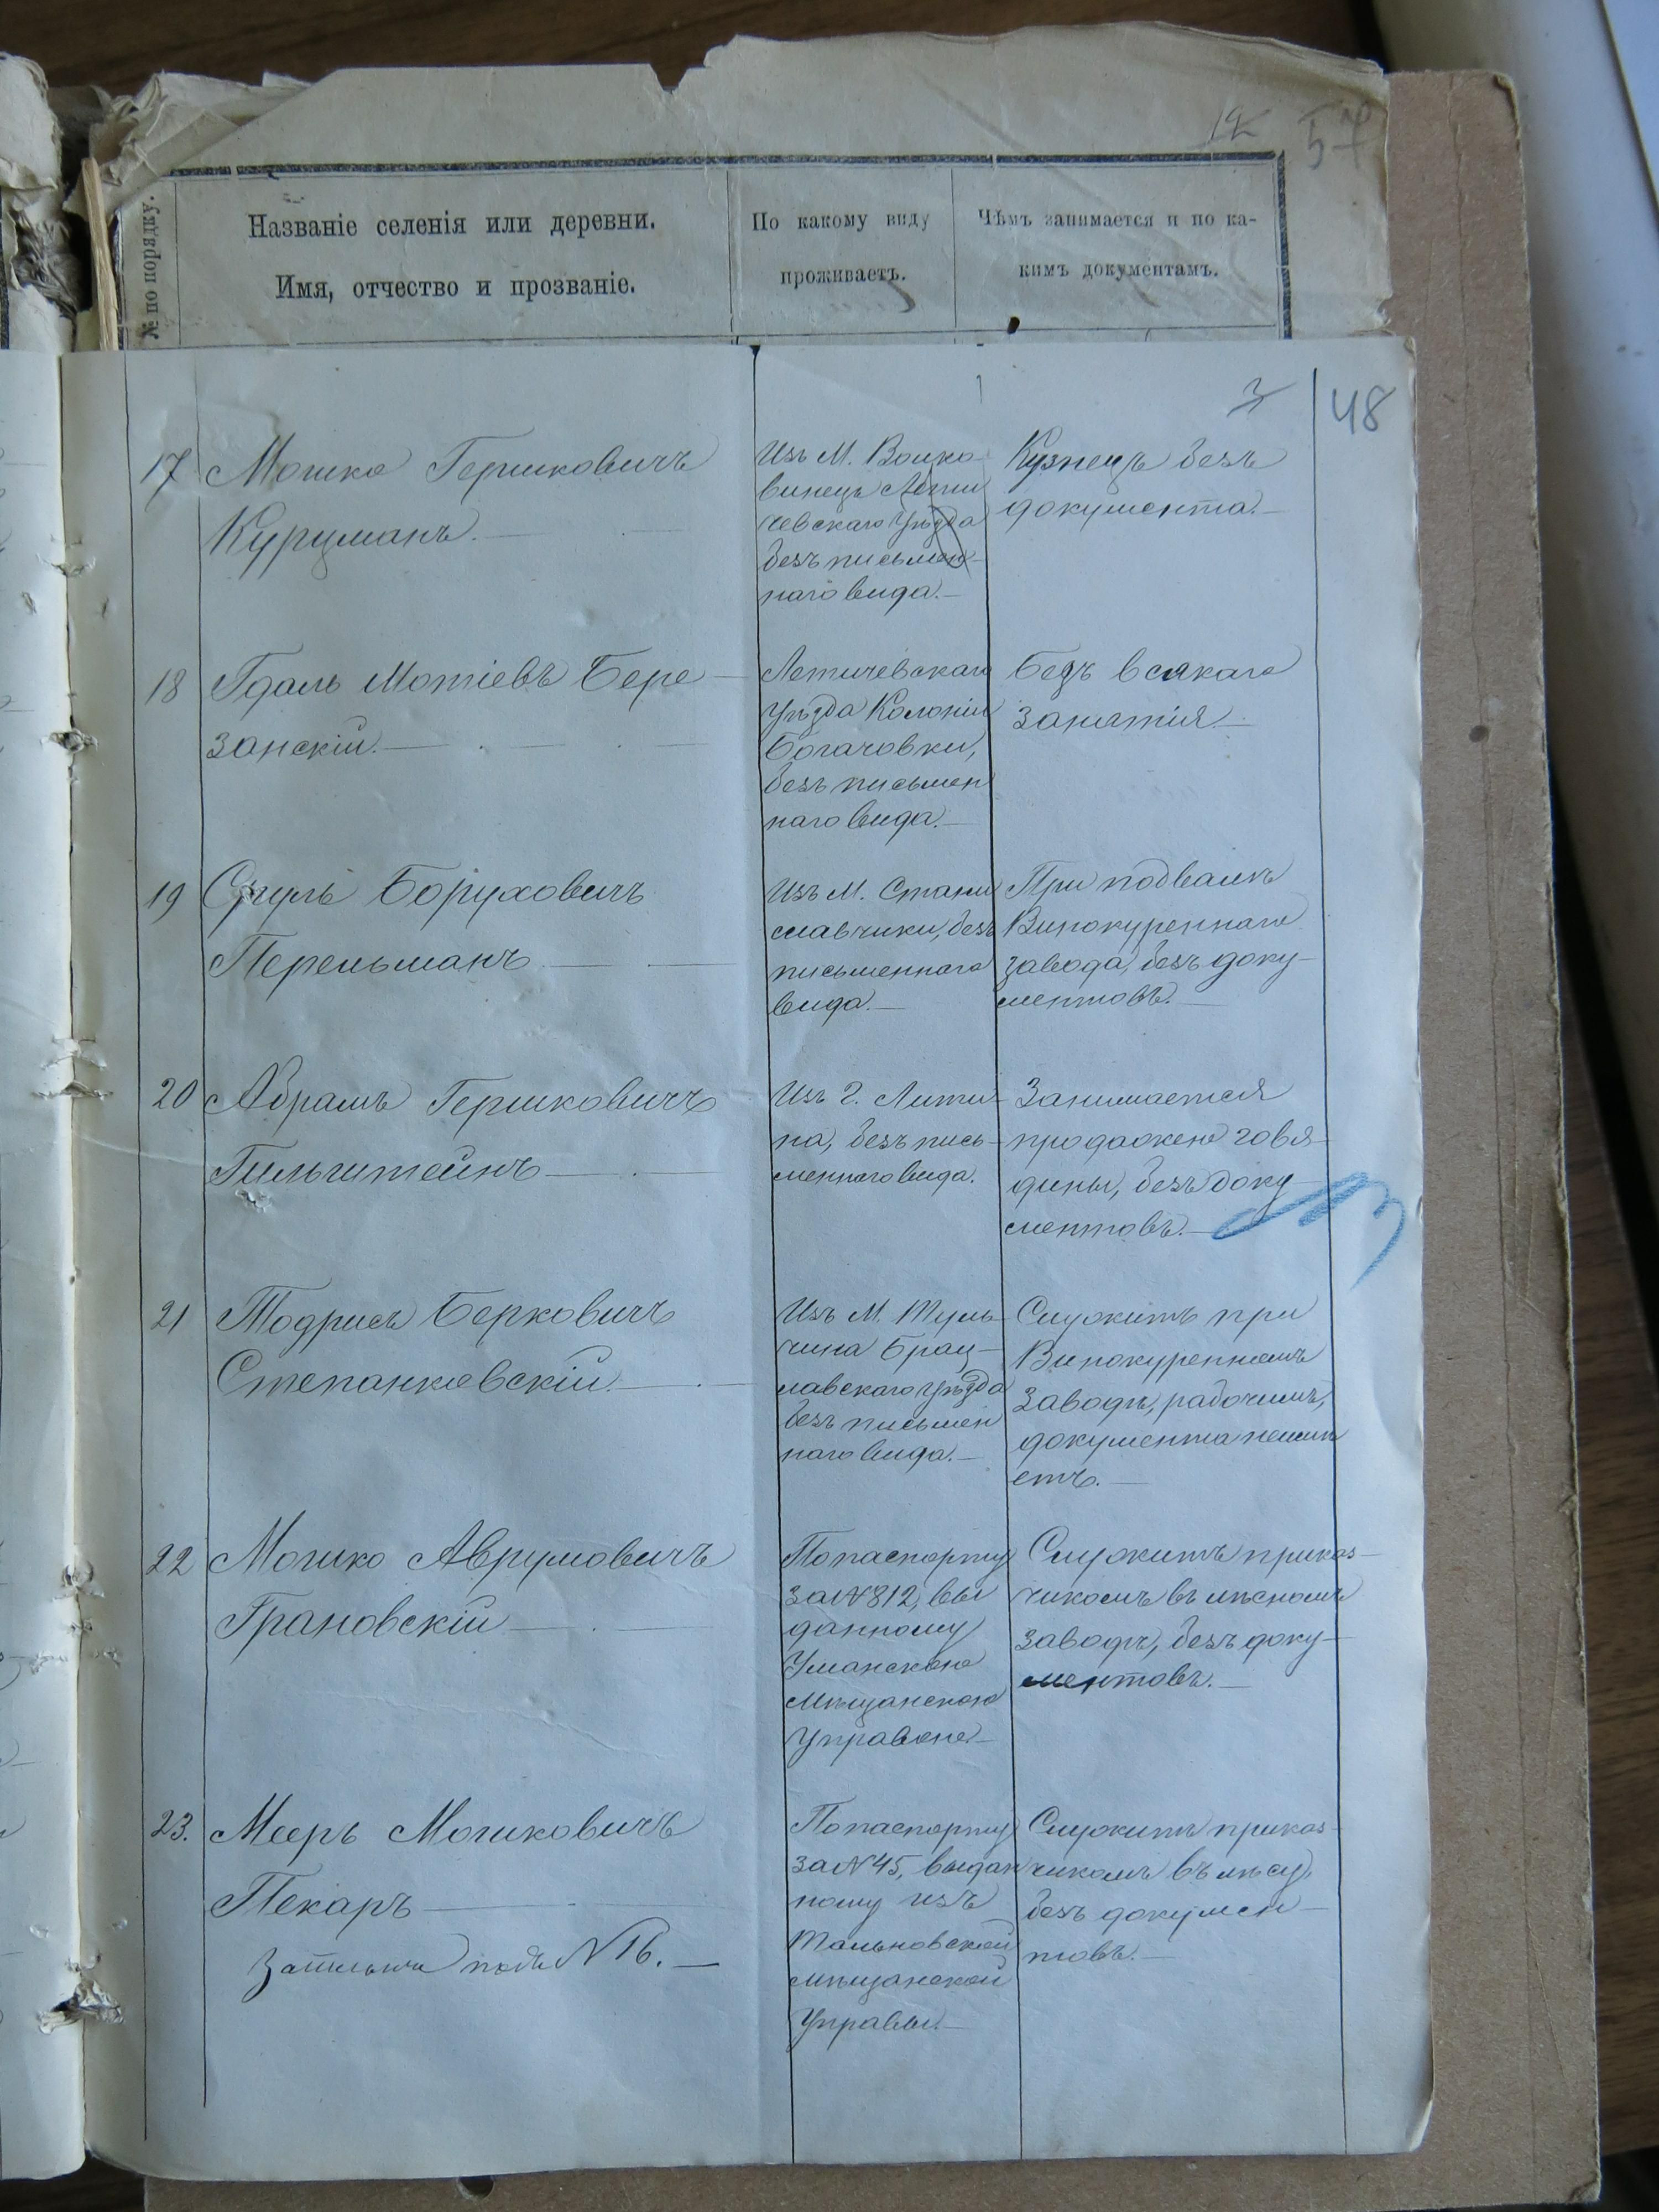 12
57
№ по порядку.
Названіе селенія или деревни.
Имя, отчество и прозваніе.
По какому виду
проживаетъ.
Чѣмъ занимается и по ка-
кимъ документамъ.
3
48
17
Мошко Гершковичъ
Курцманъ.
Изъ М. Волко-
винецъ Лети
чевскаго Уѣзда
безъ письмен-
наго вида.
Кузнецъ безъ
документа.
18
Гдаль Мотіевъ Бере-
занскій.
Летичевскаго
Уѣзда Колоніи
Богачовки,
безъ письмен
наго вида.
Безъ всякаго
занятія
19
Сруль Боруховичъ
Перельманъ
Изъ М. Стани
славчики, безъ
письменнаго
вида.
При подвалѣ
Винокуреннаго
завода, безъ доку-
ментовъ.
20
Абрамъ Гершковичъ
Гильштейнъ
Изъ Г. Лити-
на, безъ пись-
меннаго вида.
Занимается
продажею говя-
дины, безъ доку
ментовъ.
21
Тодрисъ Берковичъ
Степанковскій.
Изъ М. Туль-
чина Брац-
лавскаго Уѣзда
безъ письмен
наго вида.
Служитъ при
Винокуренномъ
Заводѣ, рабочимъ,
документа неимѣ
етъ.
22
Мошко Аврумовичъ
Грановскій
По паспорту
за №812, вы
данному
Уманскою
Мѣщанскою
Управою
Служитъ приказ-
чикомъ въ лѣсномъ
заводѣ, безъ доку-
ментовъ.
23.
Мееръ Мошковичъ
Пекаръ
подъ №16.
По паспорту
за №45, выдан
ному изъ
Тальновской
мѣщанской
Управы.
Служитъ приказ-
чикомъ въ лѣсу,
безъ докумен-
товъ.